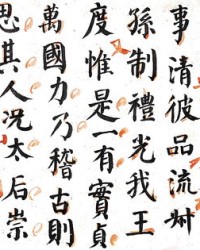 事清彼品流州
孫制禮光我王
度惟是一有實貞
萬國力乃稽古則
思其人况太后崇